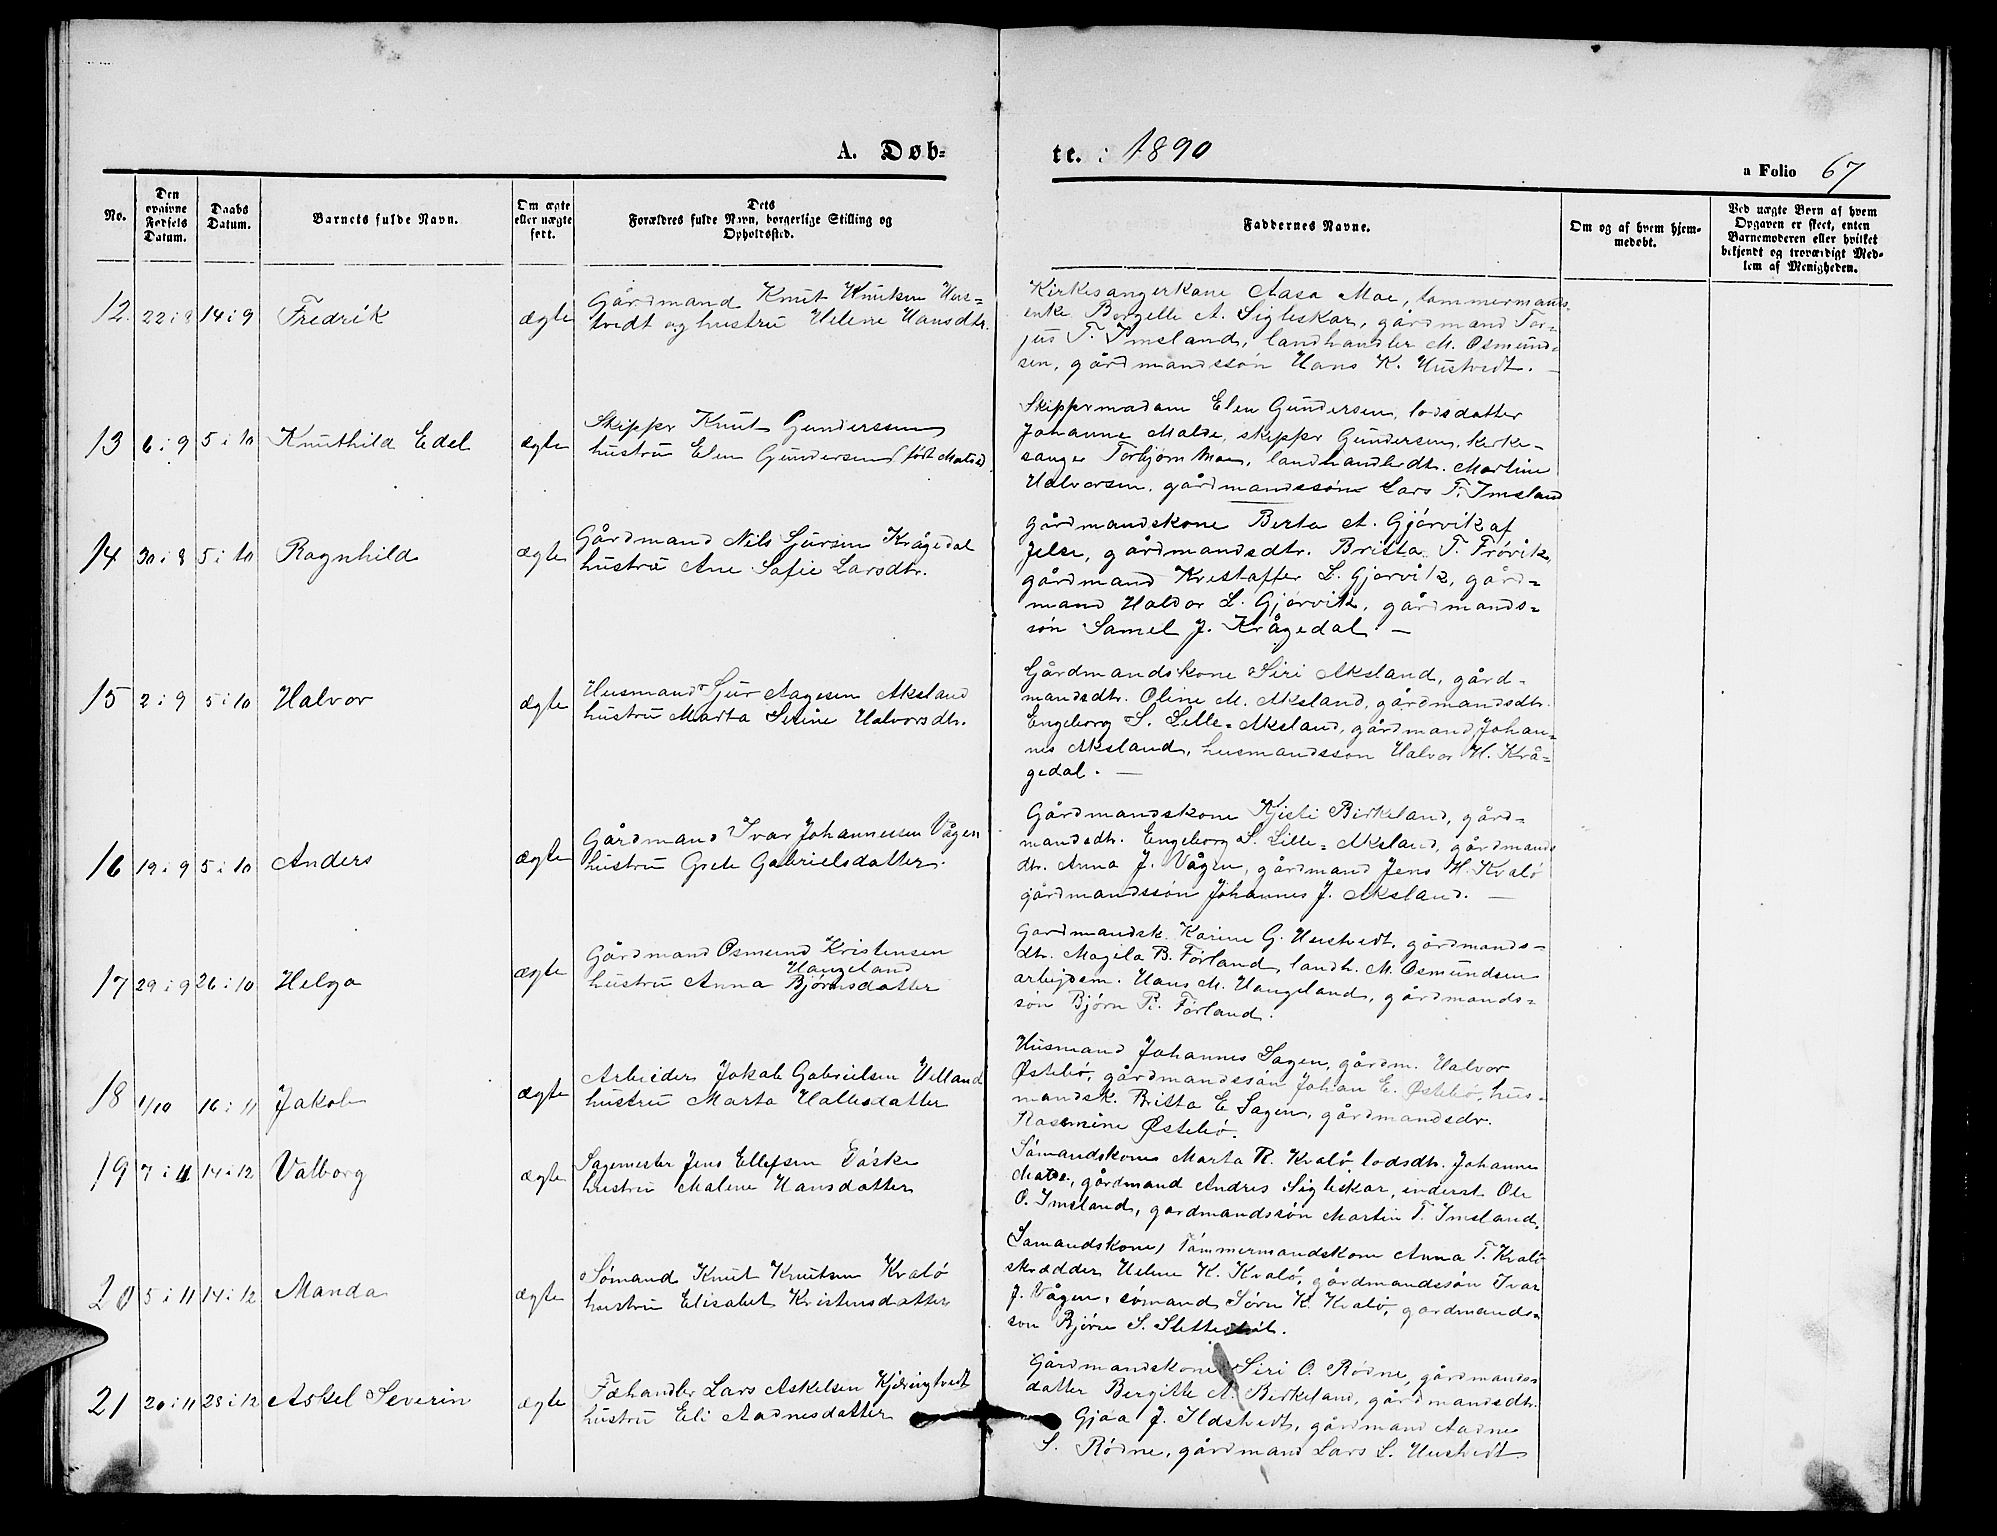 A. Døb-
te. 1890
a Folio 67
No.
Den opgivne Fødsels Datum.
Daabs Datum.
Barnets fulde Navn.
Om ægte eller uægte født.
Dets Forældres fulde Navn, borgerlige Stilling og Opholdssted.
Faddernes Navne.
Om og af hvem hjemmedøbt.
Ved uægte Børn af hvem Opgaven er skeet, enten Barnemoderen eller hvilket bekjendt og troværdigt Medlem af Menigheden.
12. 22 i 8 14 i 9 Fredrik ægte
Gårdmand Knut Knutsen Hus-
tvedt og hustru Helene Hansdtr.
Kirkesangerkone Aasa Moe, tømmermands-
enke Borgelle A. Sigleskar, gårdmand Tor-
jus T. Imsland, landhandler M. Osmund-
sen, gårdmandssøn Hans K. Hustvedt. —
13 6 i 9 5 i 10 Knuthild Edel ægte
Skipper Knut Gundersen
hustru Elen Gundersen født Malde
Skippermadam Elen Gundersen, lodsdatter
Johanne Malde, skipper Gundersen, kirke-
sanger Torbjørn Moe, landhandlerdtr. Martine
Halvorsen, gårdmandssøn Lars T. Imsland
14 30 i 8 5 i 10 Ragnhild ægte
Gårdmand Nils Sjursen Krågedal
hustru Ane Sofie Larsdtr.
gårdmandskone Berta A. Gjørvik af
Jelse, gårdmandsdtr. Britta T. Frøvik,
gårdmand Kristaffer L. Gjørvik, gård-
mand Haldor L. Gjørvik, gårdmands-
søn Samel J. Krågedal —
15 2 i 9 5 i 10 Halvor ægte
Husmand Sjur Aagesen Aksland
hustru Marta Serine Halvorsdtr.
Gårdmandskone Siri Aksland, gård-
mandsdtr. Oline M. Aksland, gårdmandsdtr.
Engeborg S. Lille-Aksland, gårdmand Johan-
nes Aksland, husmandssøn Halvor H. Krå-
gedal. —
16 19 i 9 5 i 10 Anders ægte
Gårdmand Ivar Johannesen Vågen
hustru Grete Gabrielsdatter.
Gårdmandskone Kjisti Birkeland, gård-
mandsdtr. Engeborg S. Lille-Aksland, gårdmands
dtr. Anna J. Vågen, gårdmand Jens H. Kvalø
gårdmandssøn Johannes J. Aksland. —
17 29 i 9 26 i 10 Helga ægte
Gårdmand Osmund Kristensen
Haugeland
hustru Anna Bjørnsdatter
Gårdmandsk. Karine G. Hustvedt, gårdmands-
dtr. Magela B. Førland, landh. M. Osmundsen
arbejdsm. Hans M. Haugeland, gårdmands-
søn Bjørn B. Førland.
18 1/10 16 i 11 Jakob ægte
Arbeider Jakob Gabrielsen Helland
hustru Marta Hallesdatter
Husmand Johannes Sagen, gårdm. Halvor
Østebø, gårdmandssøn Johan E. Østebø, hus-
mandsk. Britta E Sagen, gårdmandsdr.
Rasmine Østebø.
19 7 i 11 14 i 12 Valborg ægte
Sagemester Jens Ellefsen Våske
hustru Malene Hansdatter
Sømandskone Marta R. Kvalø, lodsdtr. Johanne
Malde, gårdmand Andres Sigleskar, inderst Ole
O. Imsland, gårdmandssøn Martin T. Imsland.
20 5 i 11 14 i 12 Manda ægte
Sømand Knut Knutsen Kvalø
hustru Elisabet Kristensdatter
Sømandskone, tømmermandskone Anna T. Kvalø
skrædder Helene K. Kvalø, gårdmandssøn Ivar
J. Vågen, sømand Søren K. Kvalø, gårdmands-
søn Bjørn S.
21 20 i 11 28 i 12 Askel Severin ægte
Fæhandler Lars Askelsen Kjøringtvedt
hustru Eli Aadnesdatter
Gårdmandskone Siri O. Rødne, gårdmands-
datter Bergitte A. Birkeland, gårdmandsdtr.
Gjøa J. Ilstvedt, gårdmand Aadne
S. Rødne, gårdmand Lars L. Hustvedt